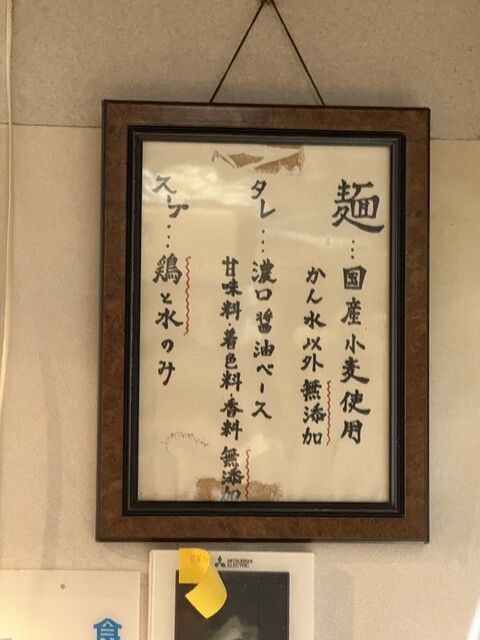 麺…国産小麦使用
かん水以外無添加
タレ…濃口醤油ベース
甘味料・着色料・香料 無添加
スープ…鶏と水のみ
MITSUBISHI
ELECTRIC
食